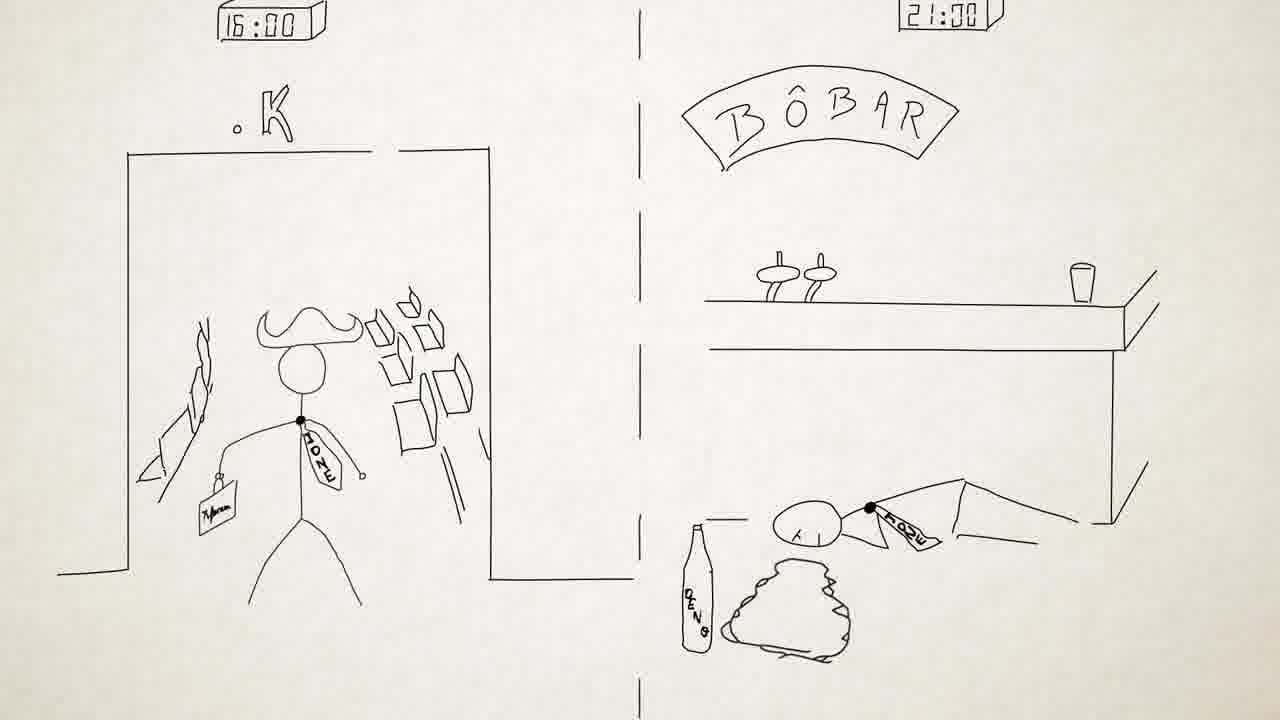 16:00
.K
HONE
21:00
BÔBAR
HONE